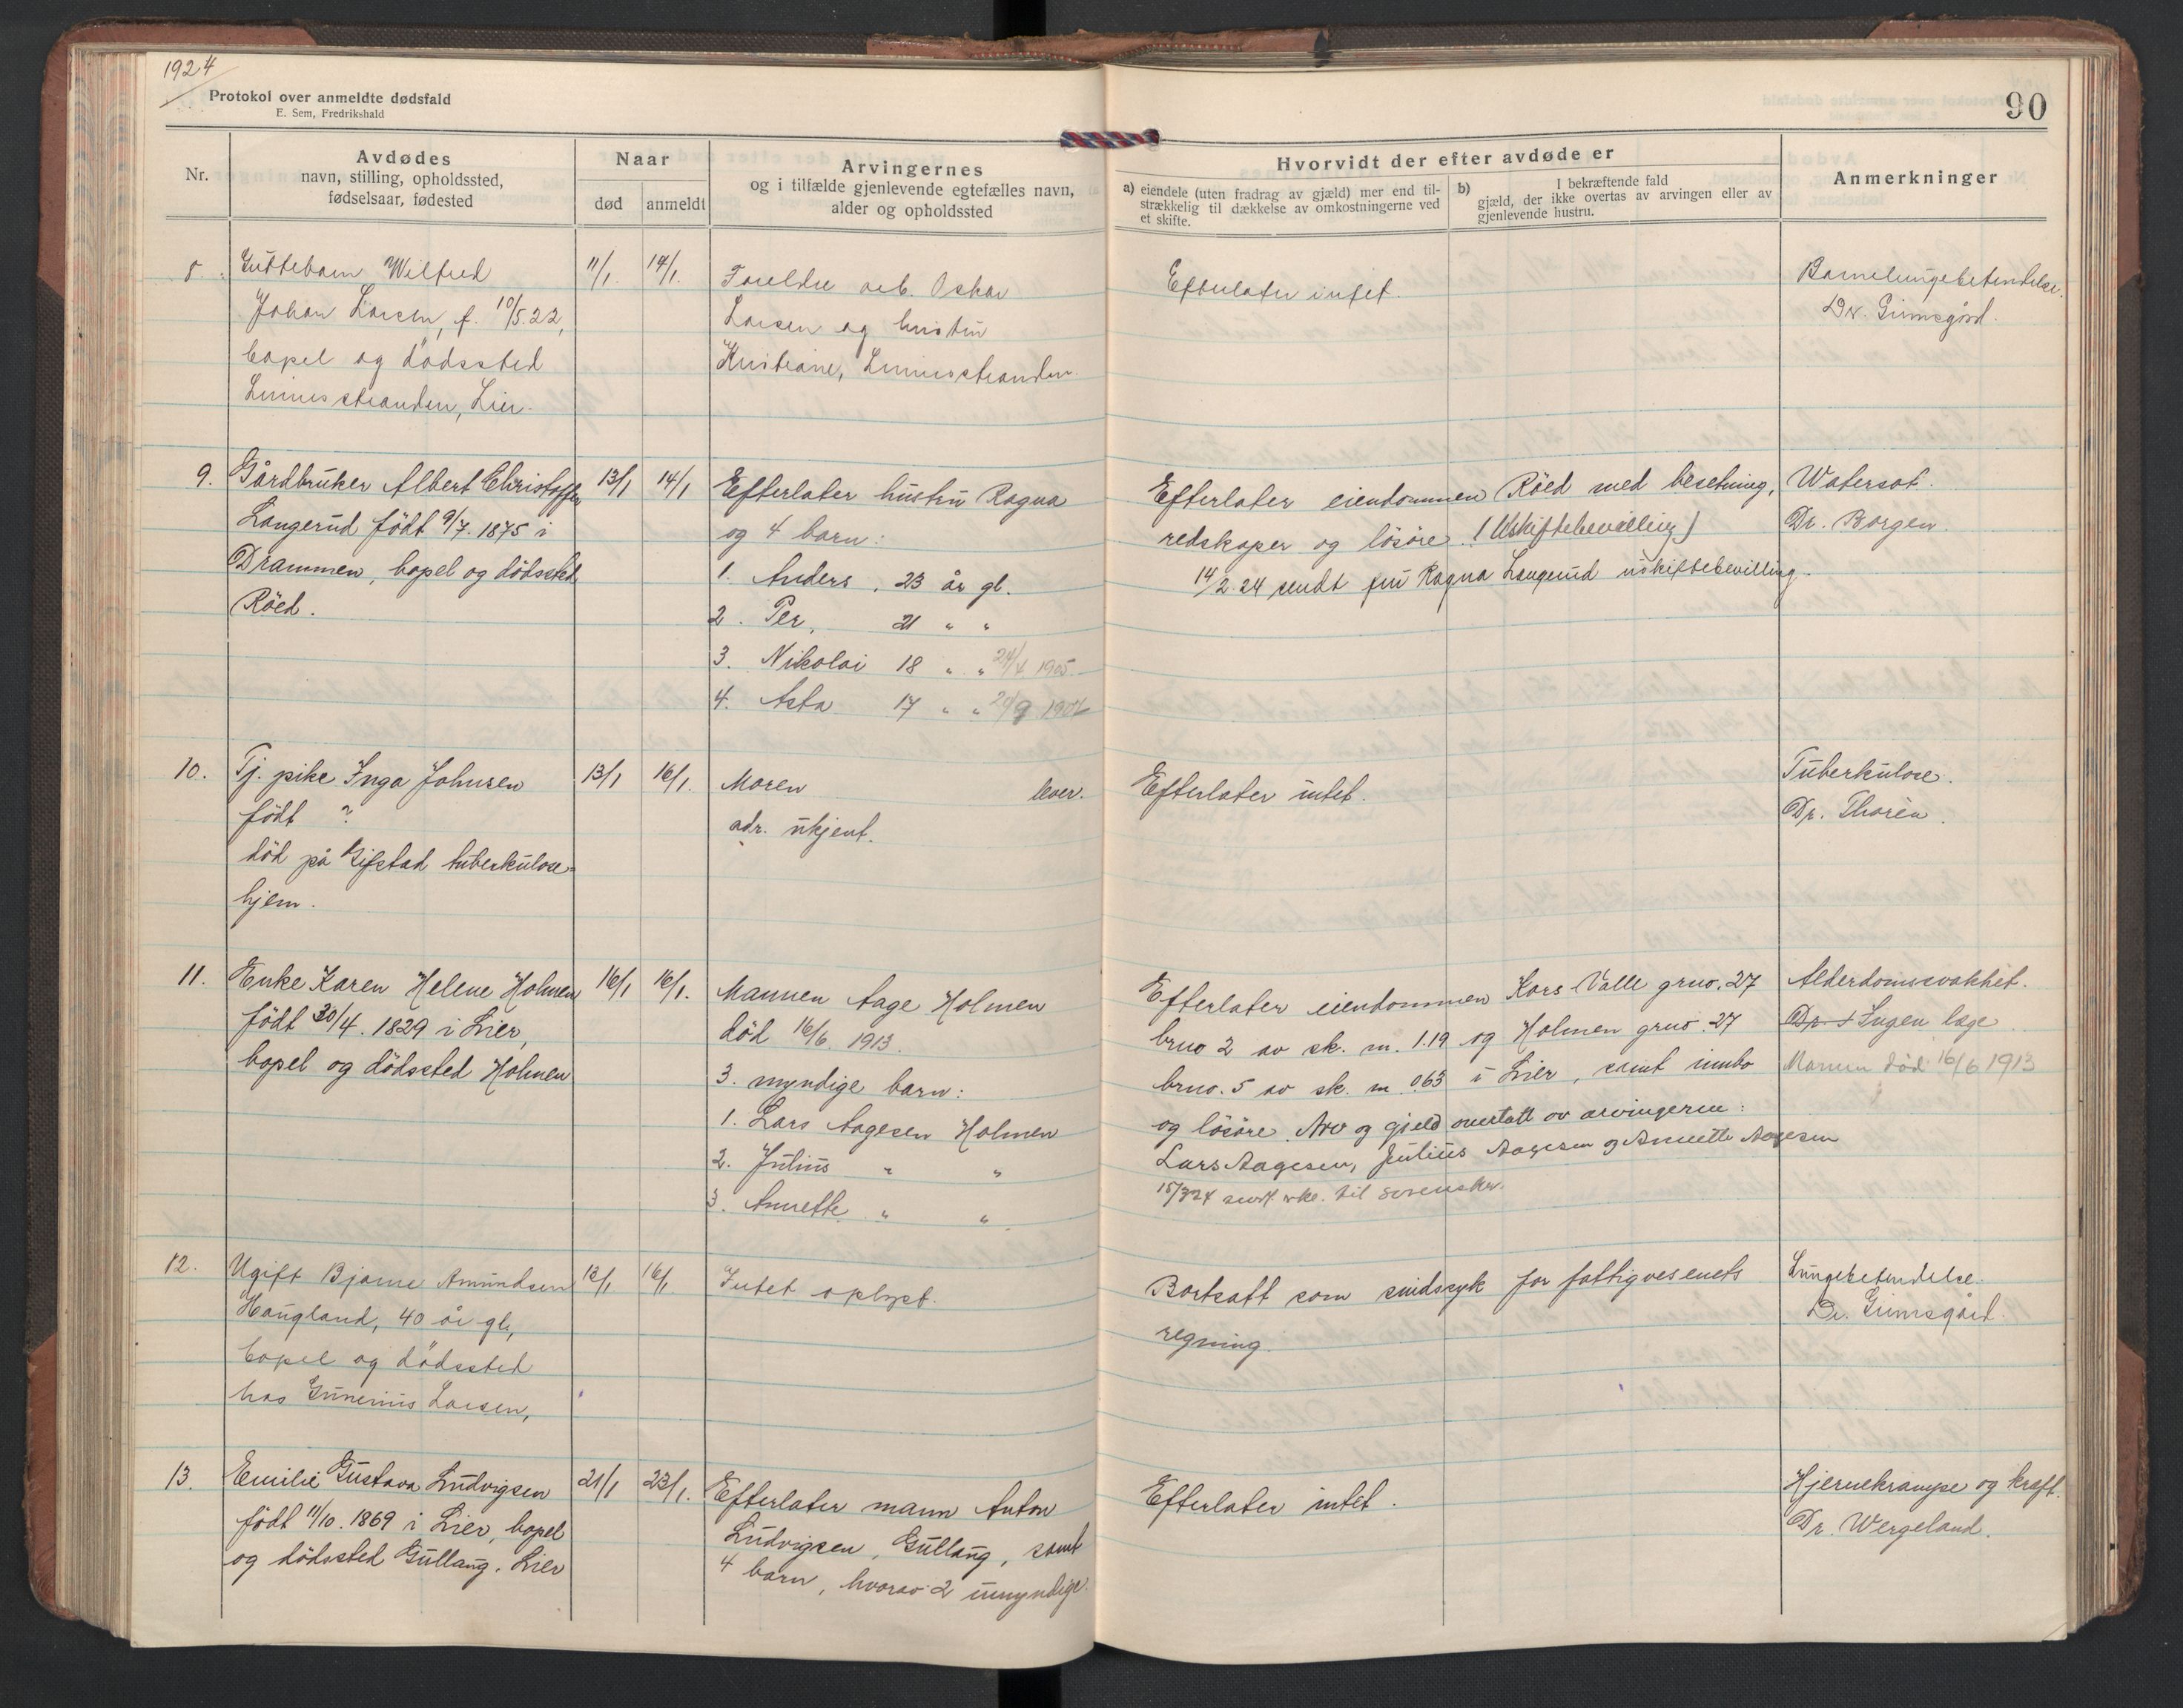 1924
Protokol over anmeldte dødsfald
E. Sem, Fredrikshald
90
Nr.
Avdødes
navn, stilling, opholdssted,
fødselsaar, fødested
Naar
død
anmeldt
Arvingernes
og i tilfælde gjenlevende egtefælles navn,
alder og opholdssted
Hvorvidt der efter avdøde er
a) eiendele (uten fradrag av gjæld) mer end til-
strækkelig til dækkelse av omkostningerne ved
et skifte.
b) I bekræftende fald
gjæld, der ikke overtas av arvingen eller av
gjenlevende hustru.
Anmerkninger
8.
Guttebarn Wilfred
Johan Larsen, f. 10/5.22,
bopel og dödssted
Linnesstranden, Lier.
11/1.
14/1.
Foreldre arb. Oskar
Larsen og hustru
Kristiane, Linnesstranden.
Efterlater intet.
Barnelungebetendelse.
Dr. Grimsgård.
9.
Gårdbruker Albert Christoffer
Langerud født 9/7. 1875 i
Drammen, bopel og dödssted
Röed.
13/1
14/1
Efterlater hustru Ragna
og 4 barn:
1. Anders, 23 år gl.
2. Per, 21 " "
3. Nikolai 18 " " 24/4 1905.
4. Asta 17 " " 24/9 1906
Efterlater eiendommen Röed med besetning,
redskaper og lösöre. (Uskiftebevilling)
14/2.24 sendt fru Ragna Langerud uskiftebevilling.
Watersot.
Dr. Borgen.
10.
Tj. pike Inga Johnsen
födt ?
död på Gifstad tuberkulose-
hjem.
13/1
16/1.
Moren lever.
adr. ukjent.
Efterlater intet.
Tuberkulose.
Dr. Thorèn.
11.
Enke Karen Helene Holmen
födt 30/4. 1829 i Lier,
bopel og dödssted Holmen
16/1
16/1.
Mannen Aage Holmen
död 16/6. 1913.
3. myndige barn:
1. Lars Aagesen Holmen
2. Julius " "
3. Annette " "
Efterlater eiendommen Kors Valle grno. 27
brno 2 av sk. m. 1.19 og Holmen grno. 27
brno. 5 av sk. m. 0.63 i Lier, samt innbo
og lösöre. Arv og gjeld overtatt av arvingerne:
Lars Aagesen, Julius Aagesen og Annette Aagesen
15/3 24 sendt til sorensker.
Alderdomsvakhet.
Dr. Ingen læge
Mannen död 16/6 1913
12.
Ugift Bjarne Amundsen
Haugland, 40 år gl.,
bopel og dödssted
hos Gunerius Larsen,
13/1
16/1
Intet oplyst.
Bortsatt som sindssyk for fattigvesenets
regning.
Lungebetendelse.
Dr. Grimsgård.
13.
Emilie Gustava Ludvigsen
födt 11/10. 1869 i Lier, bopel
og dödssted Gullaug, Lier
21/1
23/1.
Efterlater mann Anton
Ludvigsen, Gullaug, samt
4 barn, hvorav 2 umyndige.
Efterlater intet.
Hjernekrampe og kreft.
Dr. Wergeland.